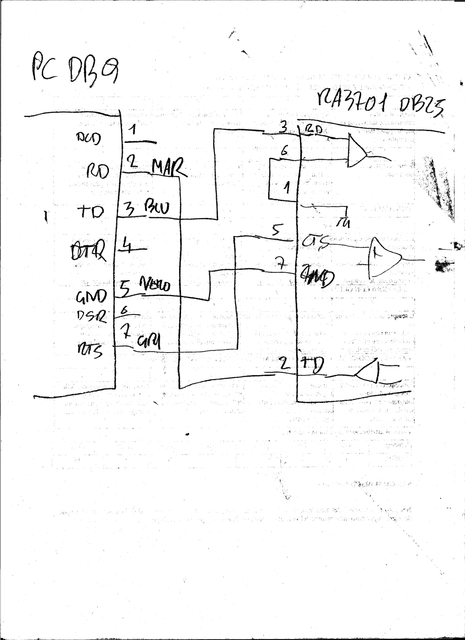 PC DB9
RA3701 DB25
DCD 1
RD 2 MAR
TD 3 BLU
DTR 4
GND 5 NERO
DSR 6
RTS 7 GRI
3 RD
6
1
5 CTS
7 GND
2 TD